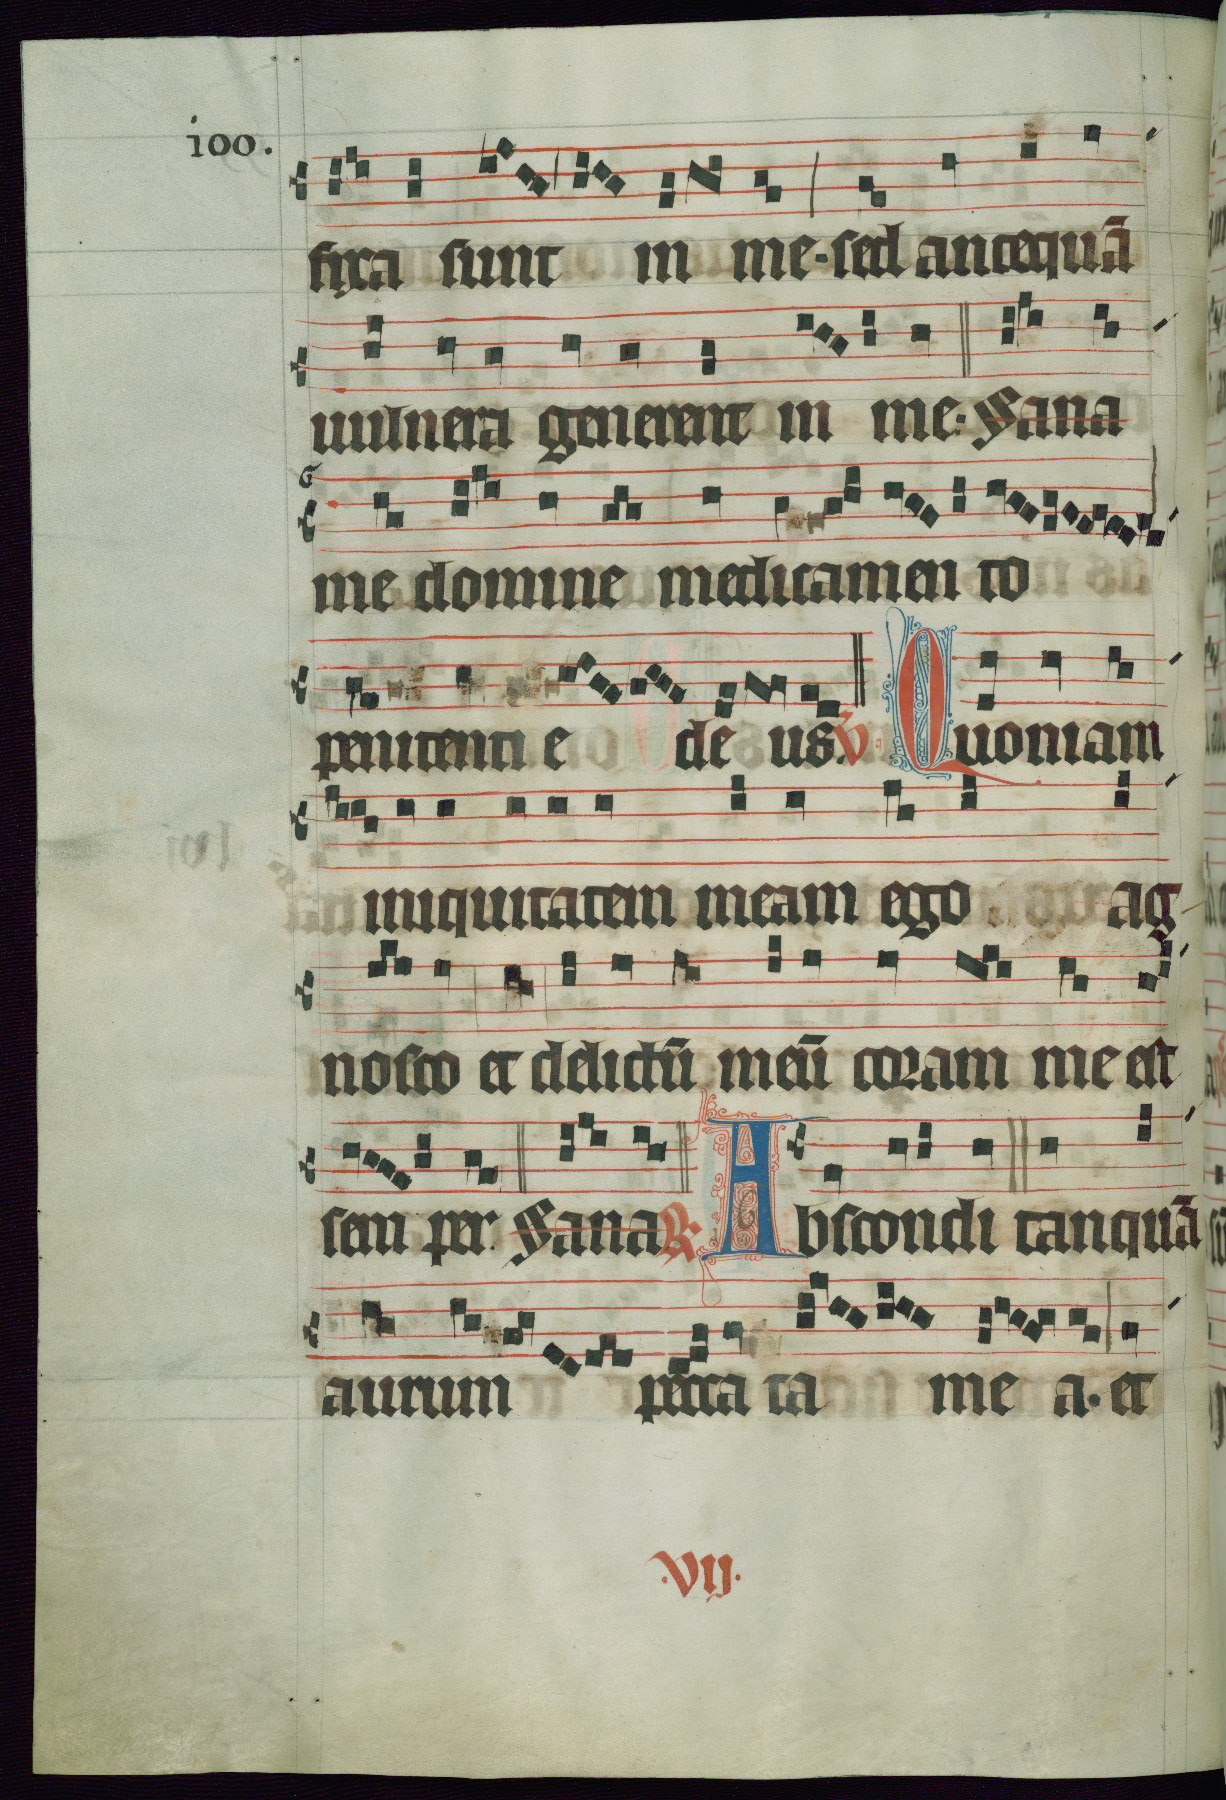 100.
fixa sunt in me. sed antequā
vulnera generent in me. Sana
G
me domine medicamen to
penitenti e de us. V. Quoniam
iniquitatem meam ego ag
nosco et delictū meū coram me est
sem per. Sana R. Abscondi tanquā
aurum pecca ta me a. et
.VII.